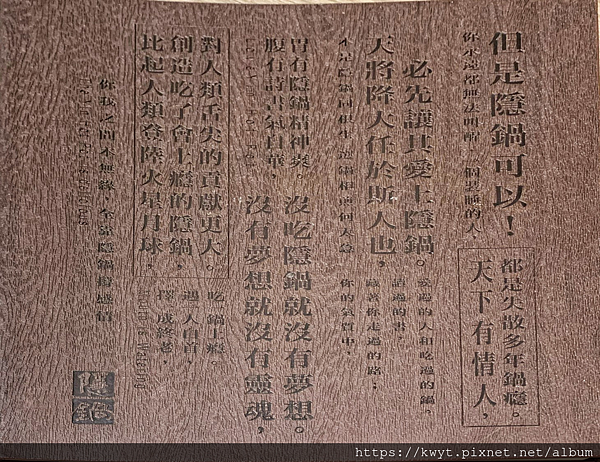 你我之間本無緣，全靠隱鍋撐感情
比起人類登陸火星月球，
創造吃了會上癮的隱鍋，
對人類舌尖的貢獻更大。
終老，
遇一人白首，
吃一鍋上癮。
腹有詩書氣自華，
胃有隱鍋精神爽。
沒有夢想就沒有靈魂，
沒吃隱鍋就沒有夢想。
本是隱鍋同根生 相煎何太急
天將降大任於斯人也，
必先讓其愛上隱鍋。
你的氣質中，
藏著你走過的路；
讀過的書，
愛過的人和吃過的鍋
你永遠都無法叫醒一個裝睡的人，
但是隱鍋可以！
天下有情人，
都是失散多年鍋癮。
隱鍋
https://kwyt.pixnet.net/album